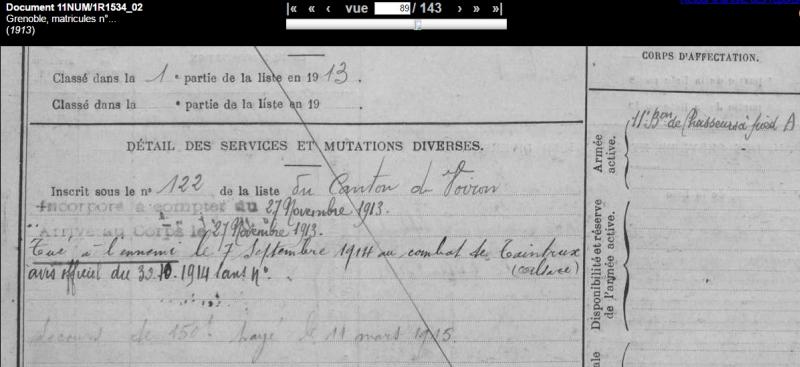 Document 11NUM/1R1534_02
Grenoble, matricules n°...
(1913)
vue 89 / 143
Classé dans la 1e partie de la liste en 1913.
Classé dans la e partie de la liste en 19
DÉTAIL DES SERVICES ET MUTATIONS DIVERSES.
Inscrit sous le no 122 de la liste du Canton de Voiron
Incorporé à compter du 27 Novembre 1913.
Arrivé au Corps le 27 Novembre 1913.
Tué à l'ennemi le 7 Septembre 1914 au combat de Taintrux
avis officiel du 10.1914 sans no.
Secours de 150f payé le 11 mars 1915.
CORPS D'AFFECTATION.
Armée active.
11e Bon de Chasseurs à pied A
Disponibilité et réserve de l'armée active.